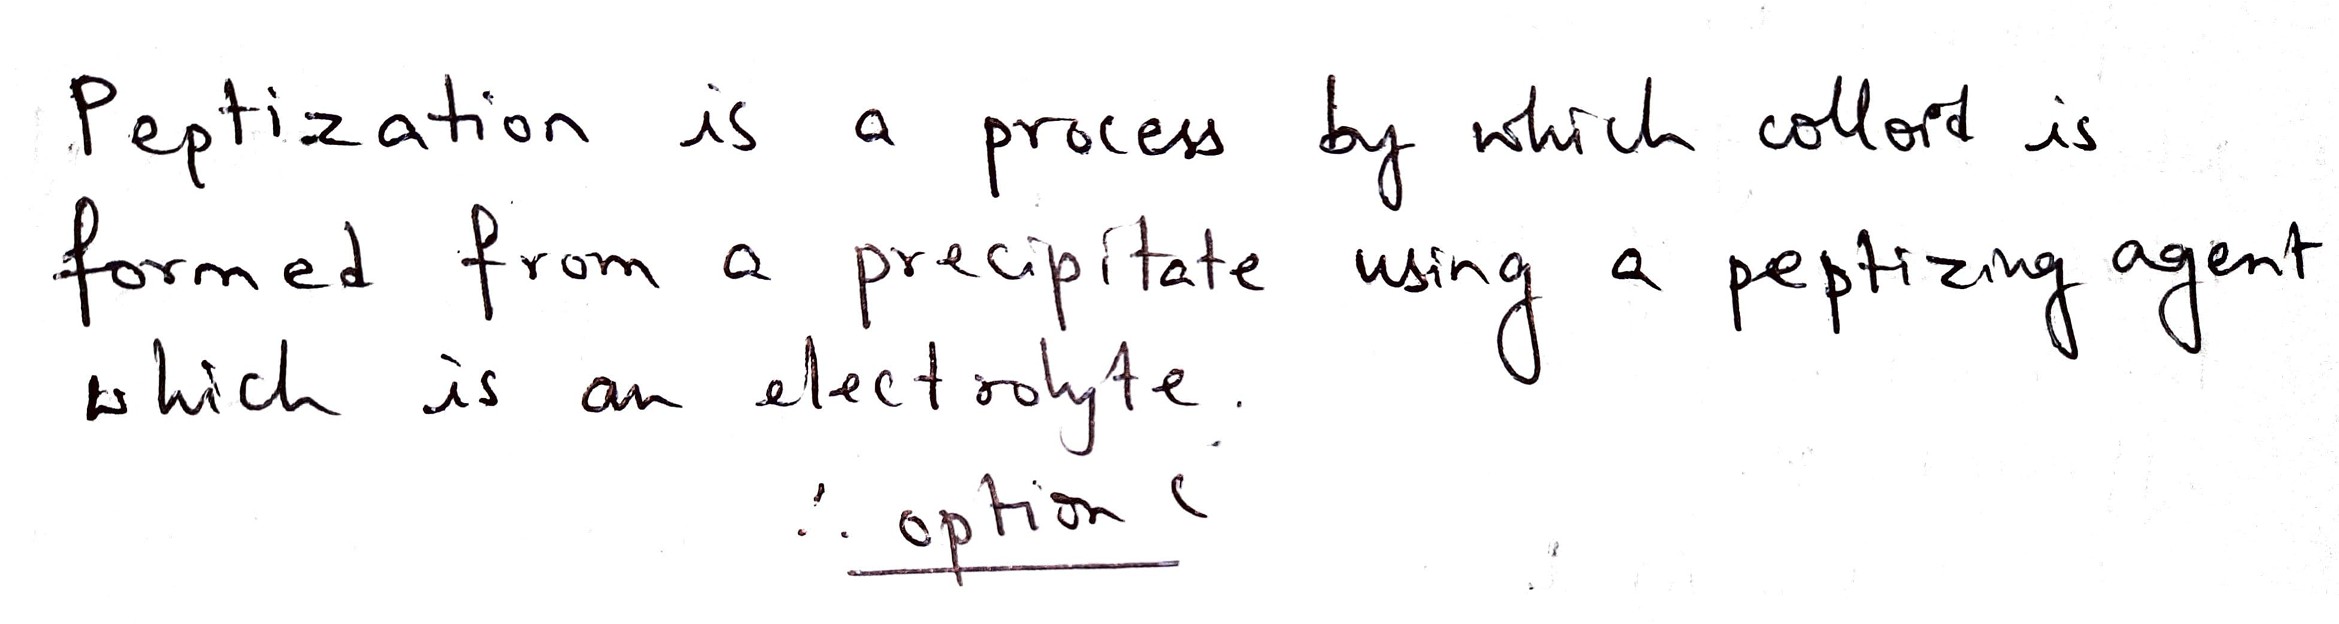 Peptization is a process by which colloid is
formed from a precipitate using a peptizing agent
which is an electrolyte.
∴ option C